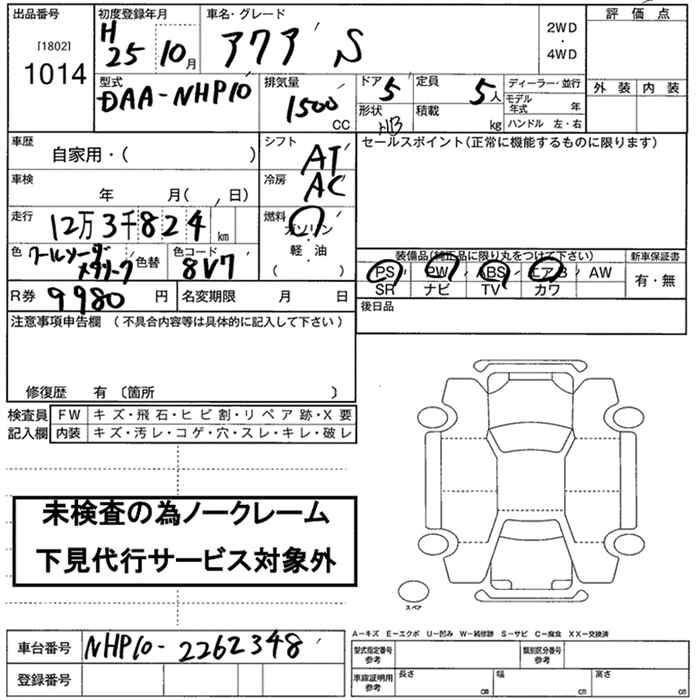 出品番号 初度登録年月 車名・グレード 評価点
[1802] H 2WD
1014 25 10月 アクア S ・
4WD
型式 排気量 ドア 5 定員 5人 ディーラー・並行 外装 内装
DAA-NHP10 1500 CC 形状 HB 積載 kg モデル年式 年
ハンドル 左・右
車歴 シフト セールスポイント(正常に機能するものに限ります)
自家用・( ) AT
車検 冷房
年 月( , 日) AC
走行 燃料
12万3千824km ガソリン
色 クールソーダメタリック 色替 色コード 8V7 軽・油
( )
装備品(純正品に限り丸をつけて下さい) 新車保証書
PS PW ABS エアB AW 有・無
SR ナビ TV カワ
R券 9980円 名変期限 月 日 後日品
注意事項申告欄 (不具合内容等は具体的に記入して下さい)
修復歴 有 〔箇所 〕
検査員 FW キズ・飛石・ヒビ割・リペア跡・X要
記入欄 内装 キズ・汚レ・コゲ・穴・スレ・キレ・破レ
未検査の為ノークレーム
下見代行サービス対象外
スペア
A-キズ E-エクボ U-凹み W-補修跡 S-サビ C-腐食 XX-交換済
車台番号 NHP10-2262348 型式指定番号 参考 類別区分番号 参考
登録番号 車庫証明用 参考 長さ cm 幅 cm 高さ cm